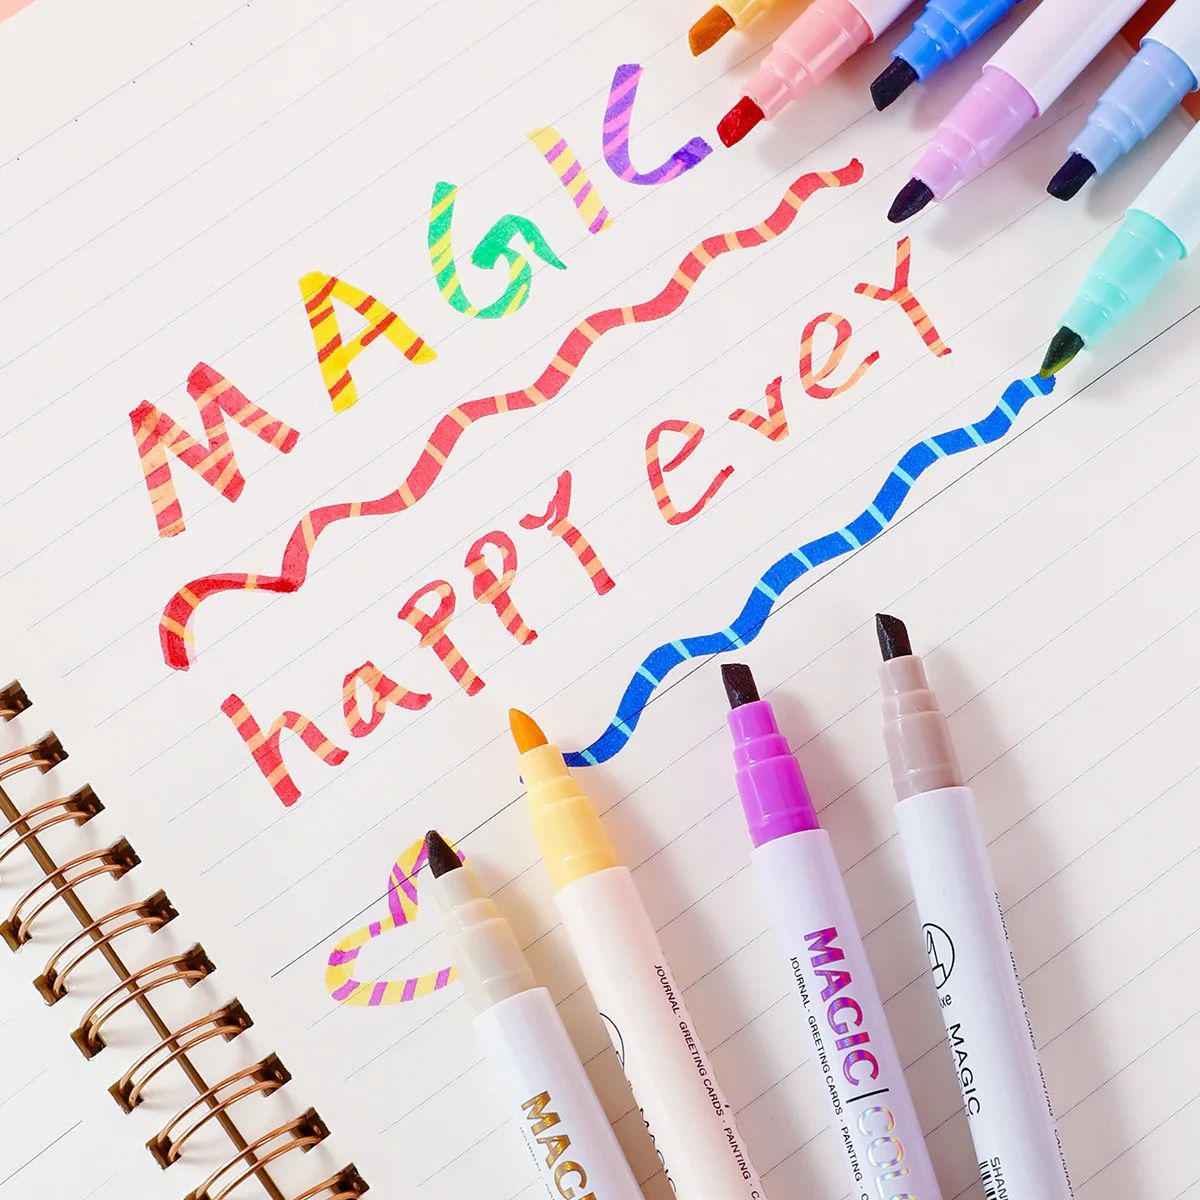 MAGIC
happy every
MAGIC
MAGIC | COLO
JOURNAL · GREETING CARDS · PAINTING ·
JOURNAL · GREETING CARDS · PAINTING ·
MAGIC
JOURNAL · GREETING CARDS · PAINTING · CALLIGRA
SHAN